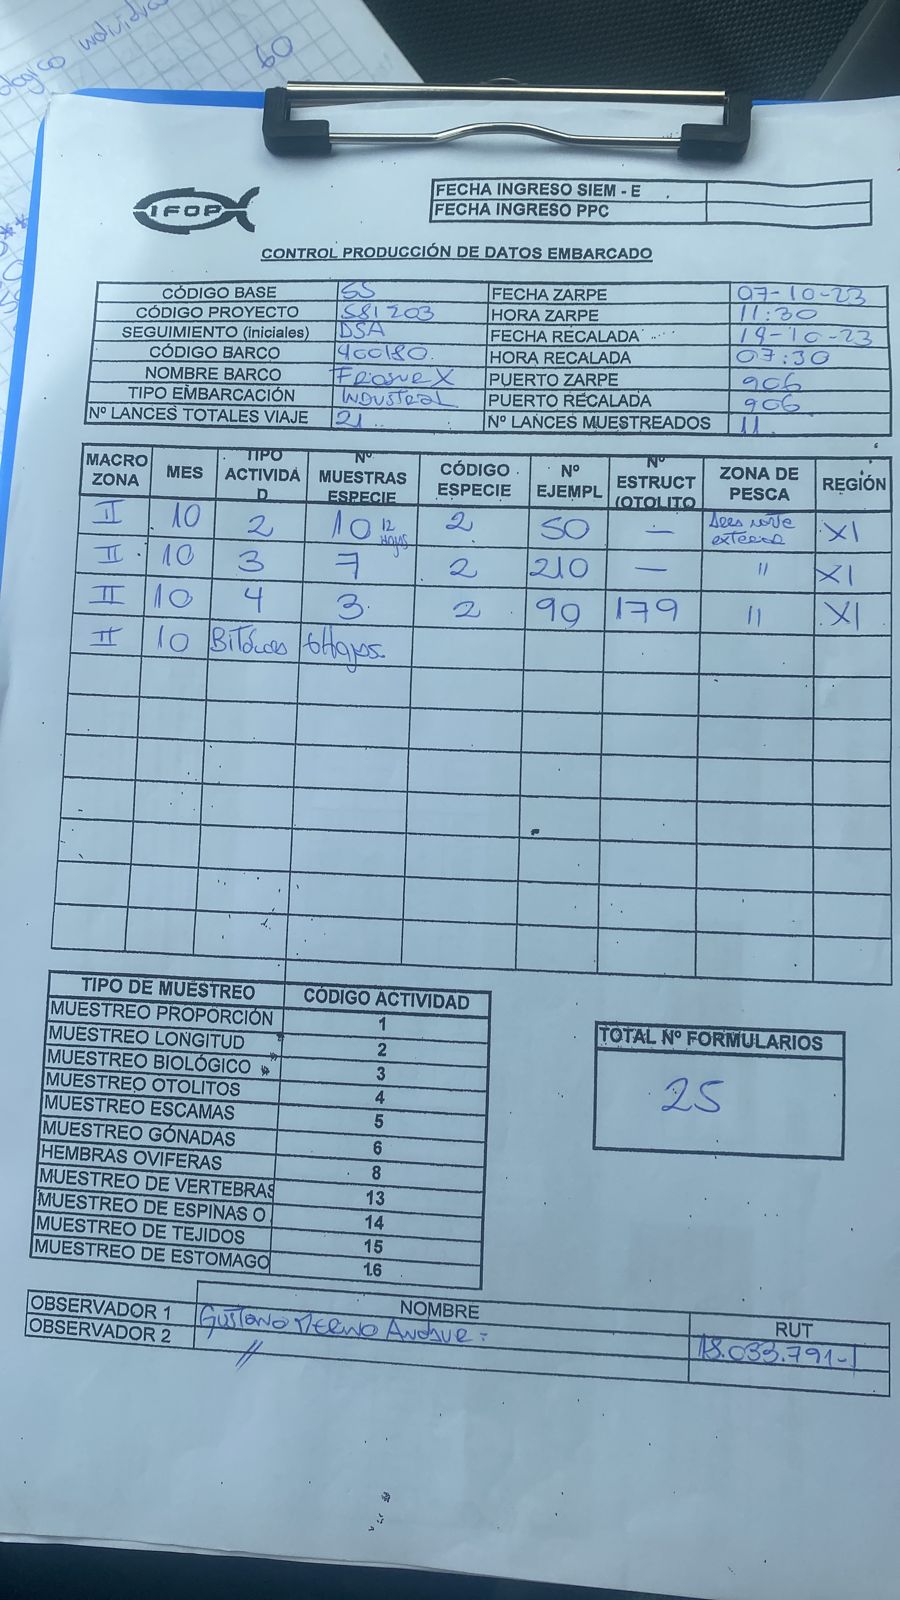 ologico individual
60
IFOP
FECHA INGRESO SIEM - E
FECHA INGRESO PPC
CONTROL PRODUCCIÓN DE DATOS EMBARCADO
CÓDIGO BASE 55 FECHA ZARPE 07-10-23
CÓDIGO PROYECTO 581203 HORA ZARPE 11:30
SEGUIMIENTO (iniciales) DSA FECHA RECALADA 19-10-23
CÓDIGO BARCO 400180 HORA RECALADA 07:30
NOMBRE BARCO X PUERTO ZARPE 906
TIPO EMBARCACIÓN INDUSTRIAL PUERTO RECALADA 906
Nº LANCES TOTALES VIAJE 21 Nº LANCES MUESTREADOS 11
MACRO ZONA MES TIPO ACTIVIDA D Nº MUESTRAS ESPECIE CÓDIGO ESPECIE Nº EJEMPL Nº ESTRUCT (OTOLITO ZONA DE PESCA REGIÓN
II 10 2 10 12 Hojas 2 50 — norte exterior XI
II 10 3 7 2 210 — " XI
II 10 4 3 2 90 179 " XI
II 10 Bitácoras 6 Hojas.
TIPO DE MUESTREO CÓDIGO ACTIVIDAD
MUESTREO PROPORCIÓN 1
MUESTREO LONGITUD 2
MUESTREO BIOLÓGICO 3
MUESTREO OTOLITOS 4
MUESTREO ESCAMAS 5
MUESTREO GÓNADAS 6
HEMBRAS OVIFERAS 8
MUESTREO DE VERTEBRAS 13
MUESTREO DE ESPINAS O 14
MUESTREO DE TEJIDOS 15
MUESTREO DE ESTOMAGO 16
TOTAL Nº FORMULARIOS
25
NOMBRE RUT
OBSERVADOR 1 Gustavo 18.033.791-1
OBSERVADOR 2 //